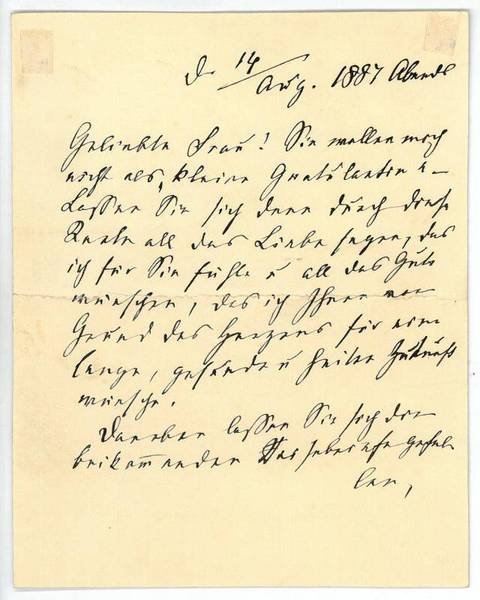 d. 14/Aug. 1887 Abends
Geliebte Frau! Sie wollen mich
nicht als kleine Gratulantin –
Lassen Sie sich denn durch diese
Karte all das Liebe sagen, das
ich für Sie fühle u all das Gute
wünschen, das ich Ihnen von
Grund des Herzens für eine
lange, gesunde u heitre Zukunft
wünsche.
Daneben lassen Sie sich den
beikommenden gefal
len,